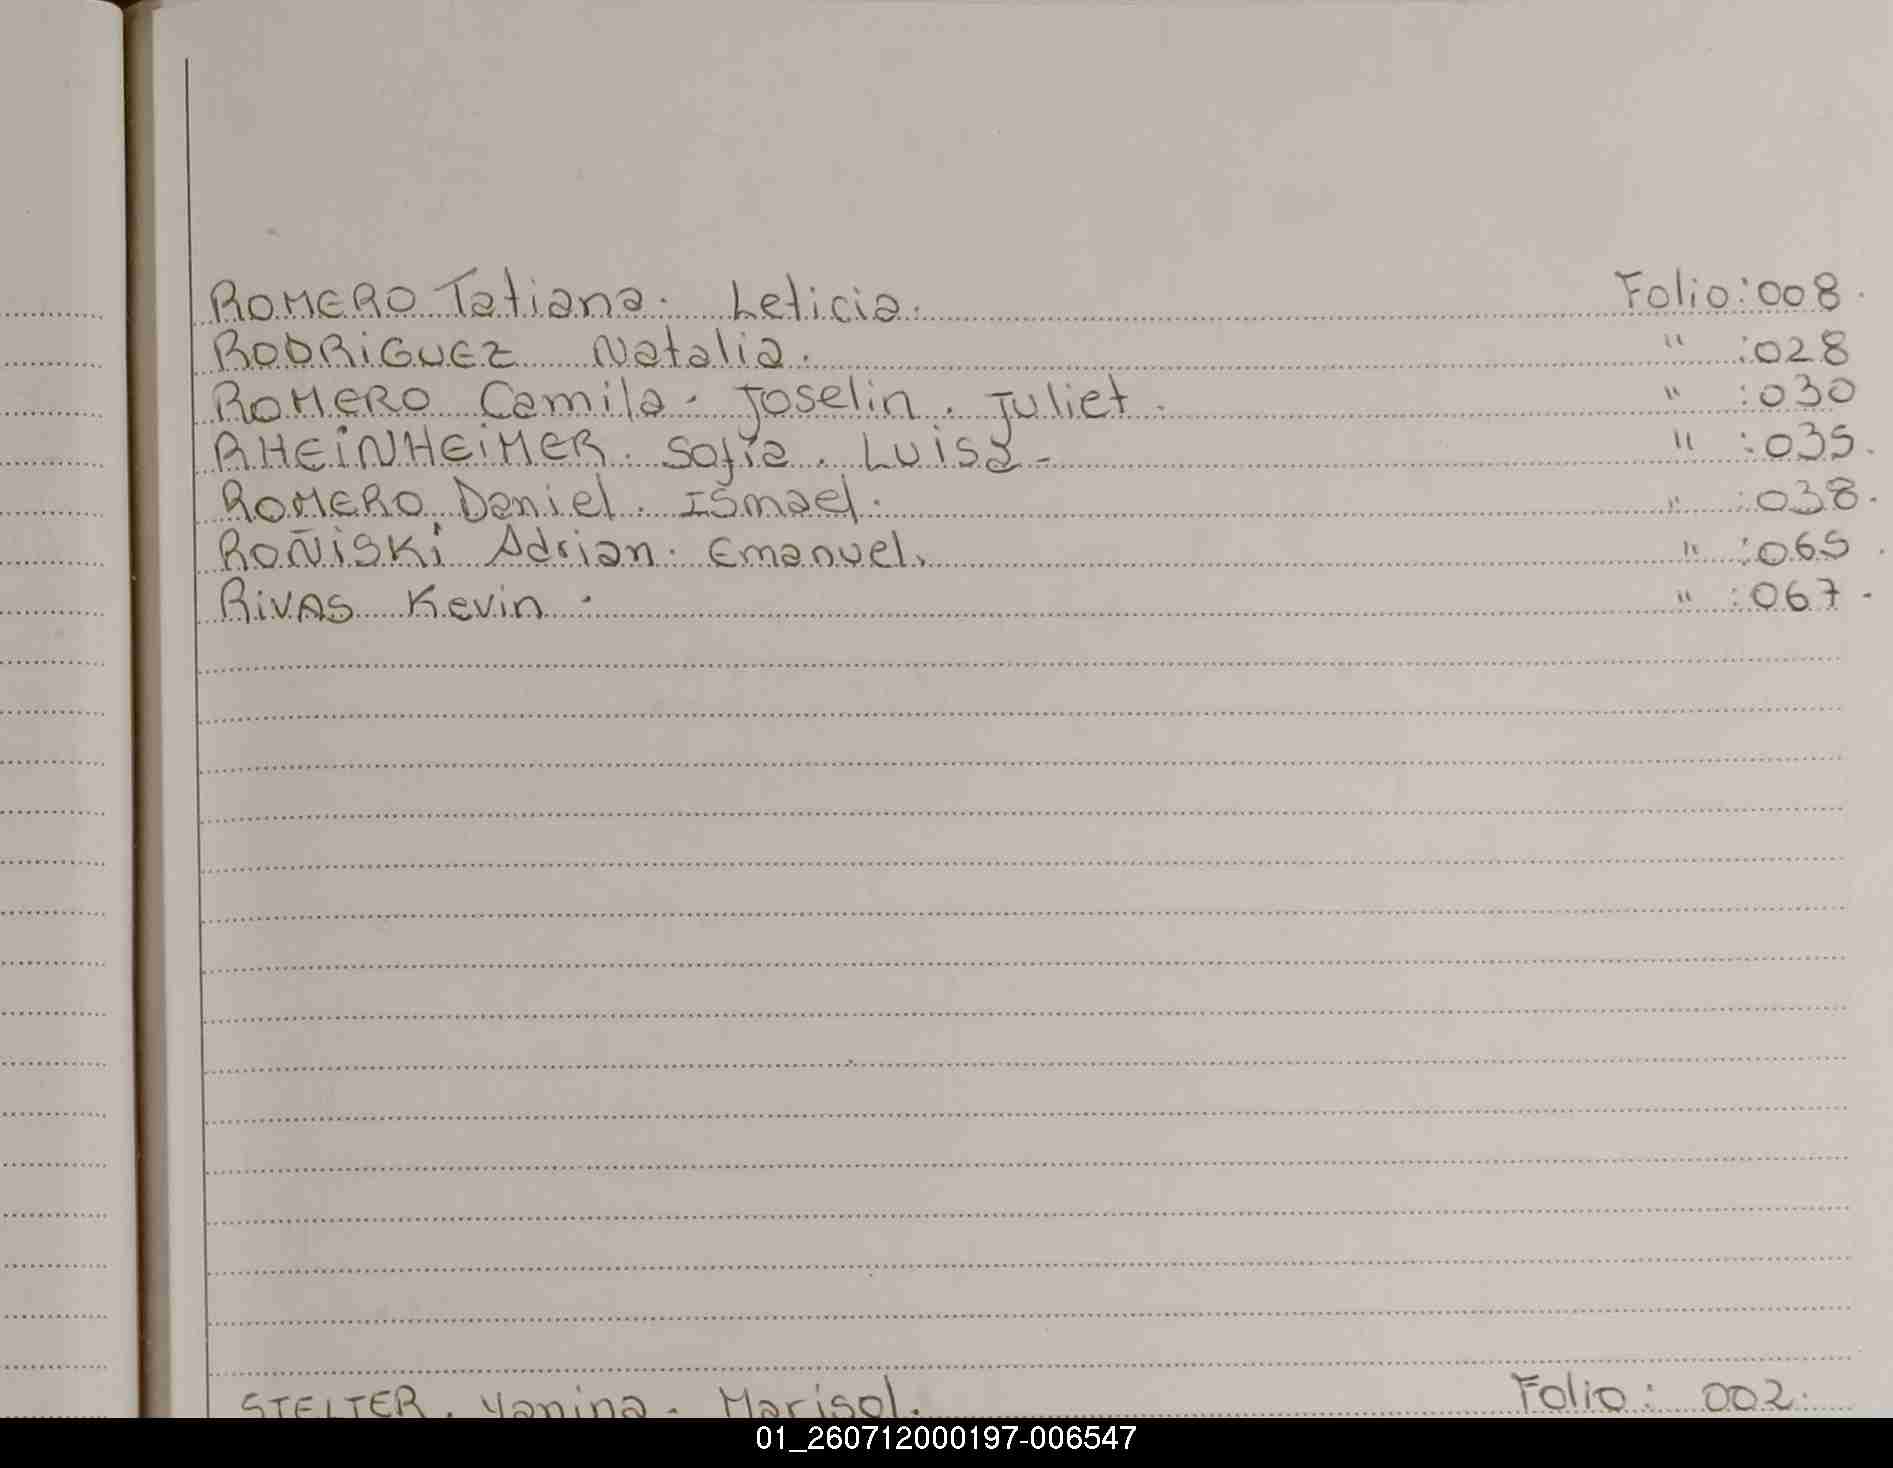 ROMERO Tatiana. Leticia. Folio: 008.
RODRiGUEZ Natalia. " : 028
ROMERO Camila. Joselin. Juliet. " : 030
RHEiNHEiMER. Sofia. Luisa- " : 035.
ROMERO Daniel. Ismael. " : 038.
ROÑiSKi Adrian. Emanuel. " : 065.
RiVAS Kevin. " : 067.
STELTER. Yanina. Marisol. Folio: 002.
01_260712000197-006547